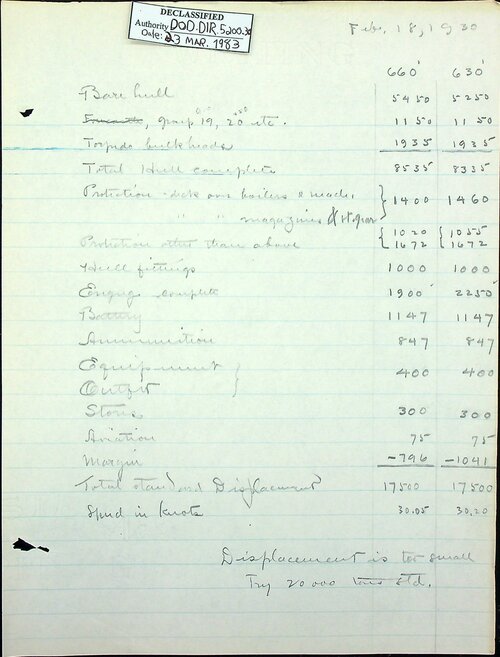 DECLASSIFIED
Authority DOD.DIR.5200.30
Date: 23 MAR. 1983
Feb. 18, 1930
660' 630'
Bare hull 5450 5250
group 19, 20 etc. 1150 1150
Torpedo bulkheads 1935 1935
Total Hull complete 8535 8335
Protection - deck over boilers & mach. 1400 1460
" " magazines & st. gear 1020 1055
Protection other than above 1672 1672
Hull fittings 1000 1000
Engng complete 1900 2250
Battery 1147 1147
Ammunition 847 847
Equipment
Outfit 400 400
Stores 300 300
Aviation 75 75
Margin -796 -1041
Total standard Displacement 17500 17500
Speed in knots 30.05 30.20
Displacement is too small
Try 20000 tons std.